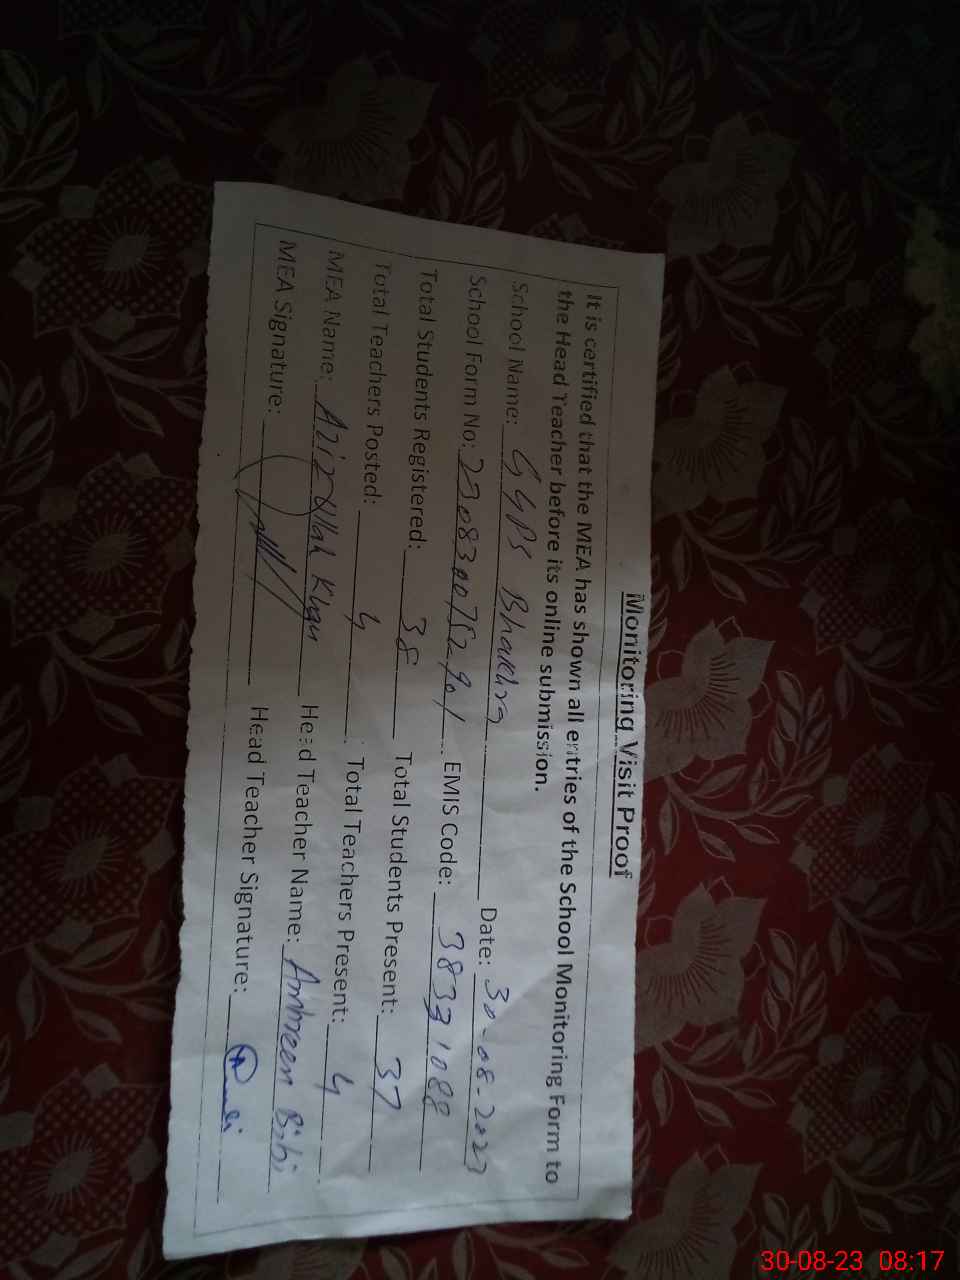 Monitoring Visit Proof
It is certified that the MEA has shown all entries of the School Monitoring Form to
the Head Teacher before its online submission.
School Name: GGPS Bhakhra Date: 30-08-2023
School Form No: EMIS Code: 38331088
Total Students Registered: 38 Total Students Present: 37
Total Teachers Posted: 4 Total Teachers Present: 4
MEA Name: Azizullah Khan Head Teacher Name: Ambreen Bibi
MEA Signature: Head Teacher Signature:
30-08-23 08:17